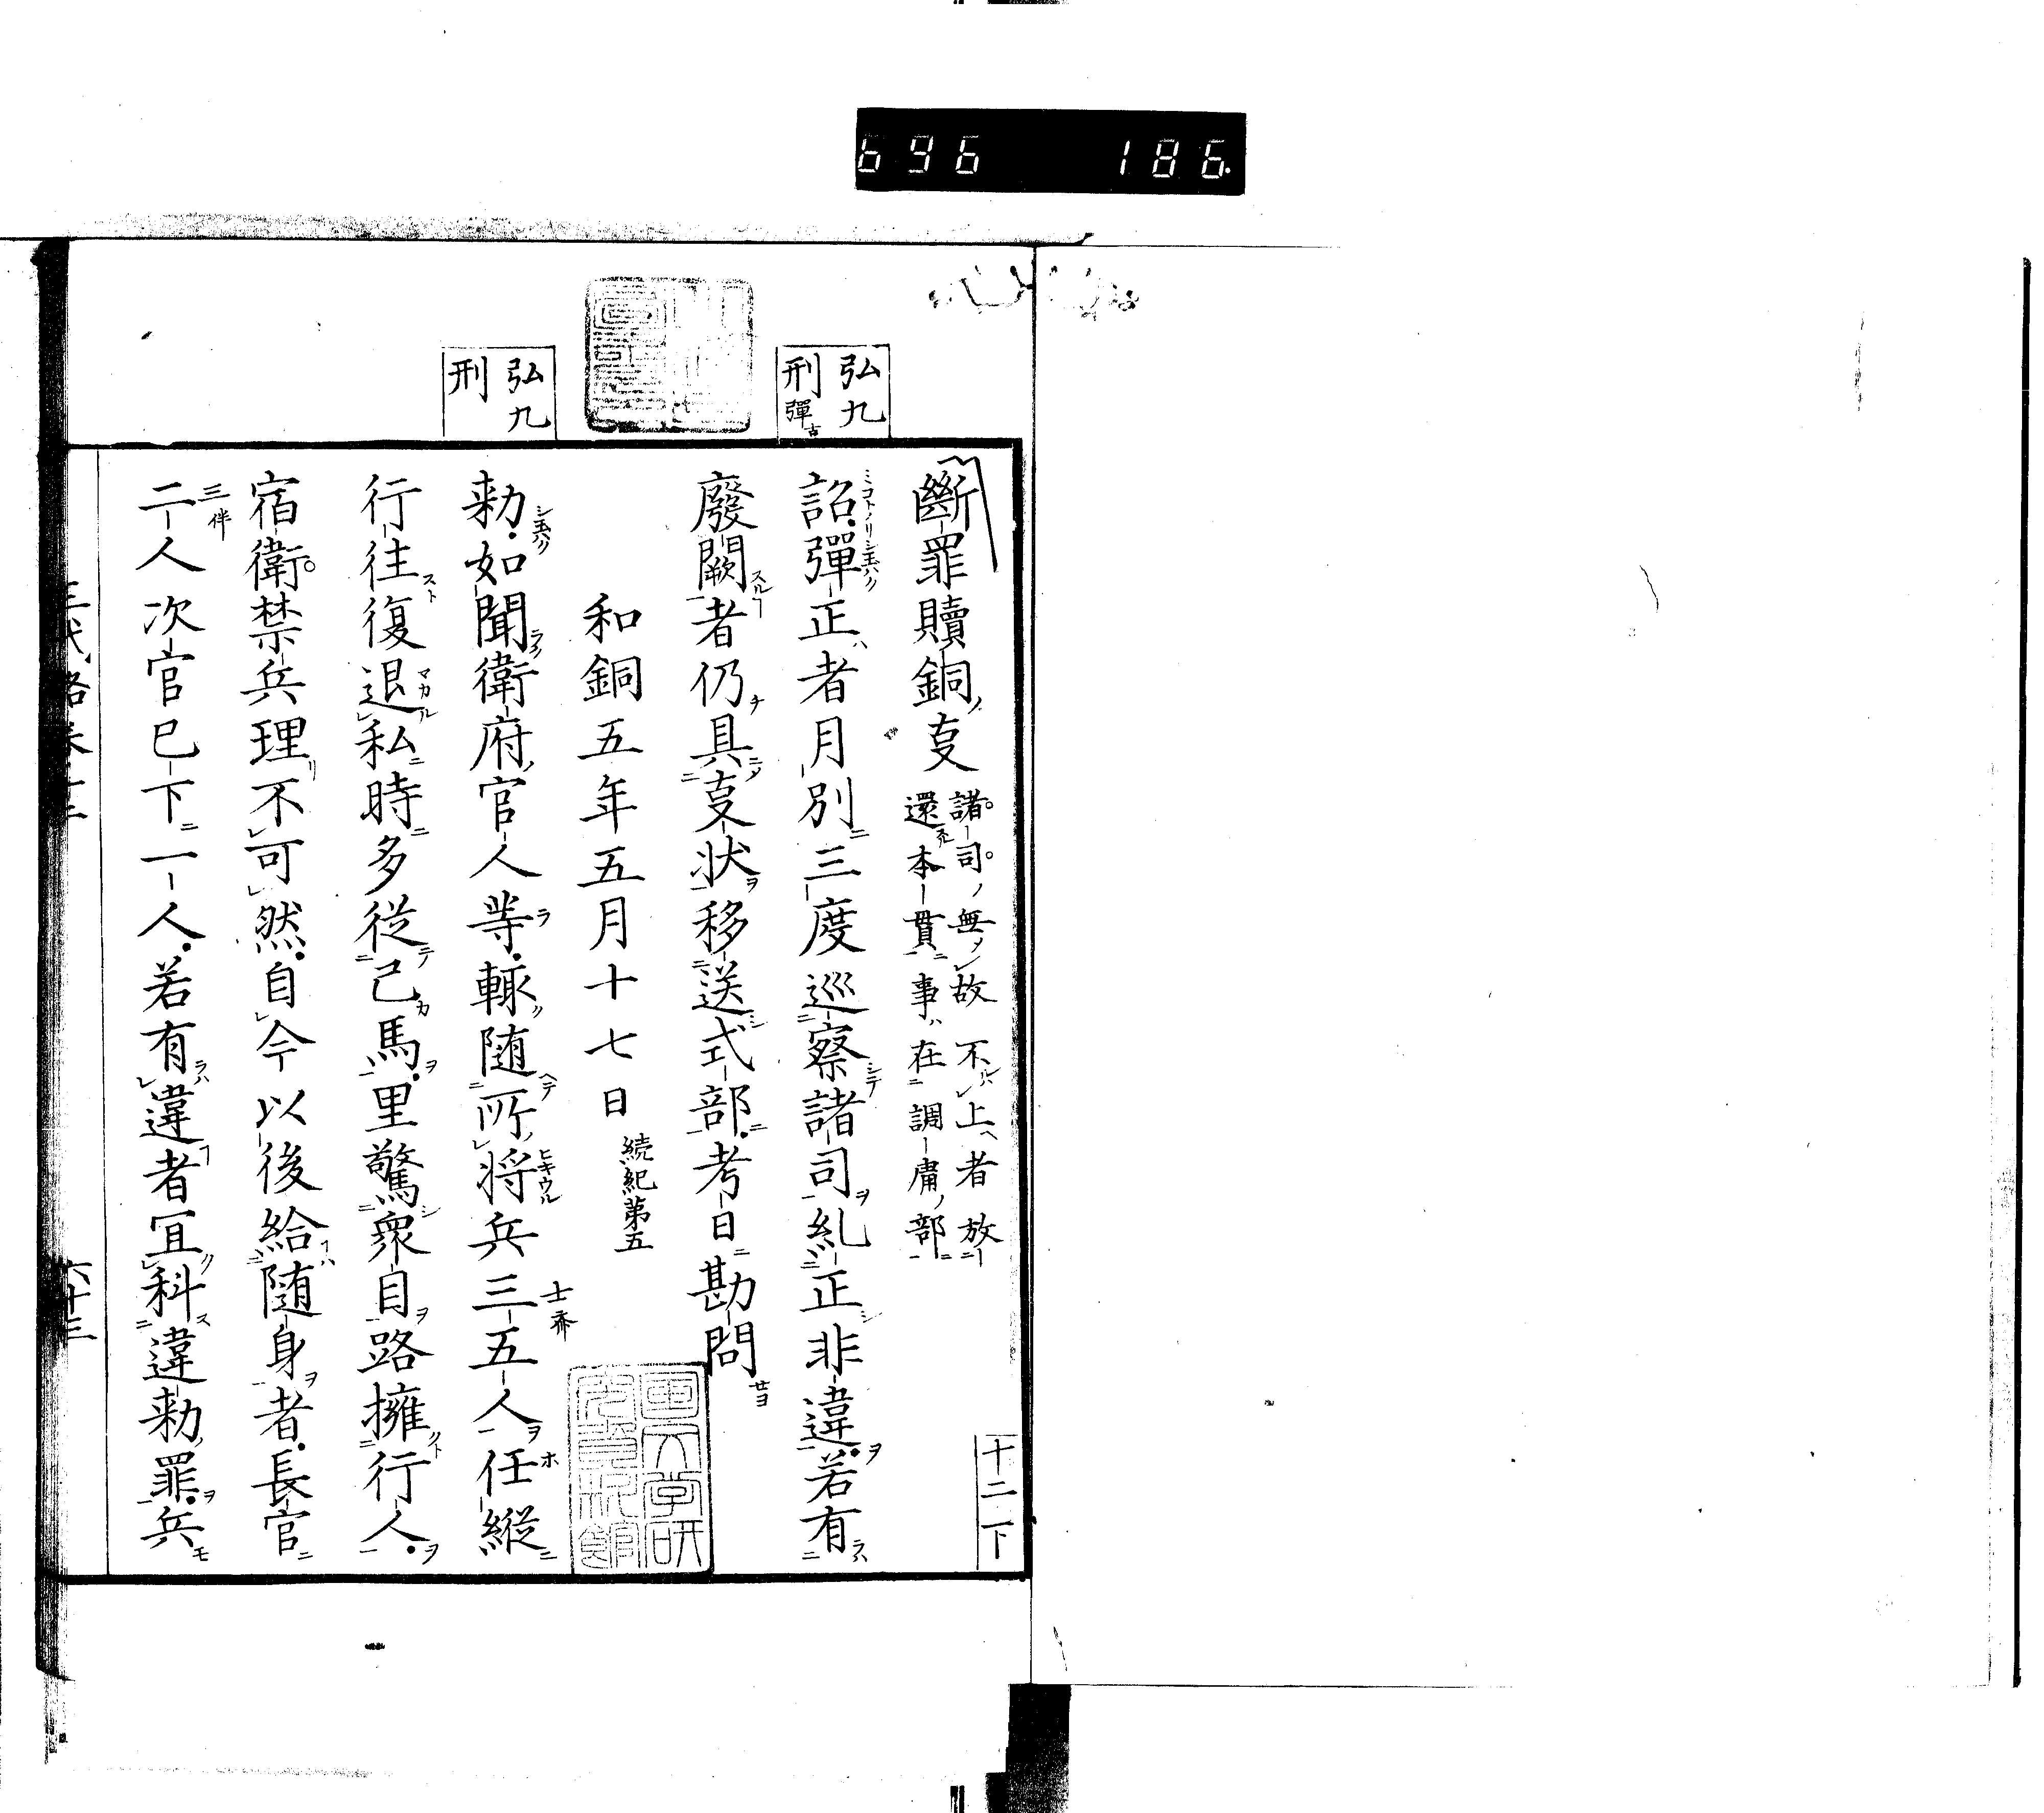 696 186
弘九
刑彈古
弘九
刑
十二下
斷罪贖銅ノ㕝
諸司ノ無故不上者放
還本貫事ハ在調庸ノ部
詔彈正者月別三度巡察諸司糺正非違若有
廢闕者仍具㕝状移送式部考日勘問
和銅五年五月十七日 続紀第五
勅如聞衛府官人等輙随所将兵三五人任縦
行往復退私時多從己馬里驚衆自路擁行人
宿衛禁兵理不可然自今以後給随身者長官
二人次官已下一人若有違者冝科違勅罪兵